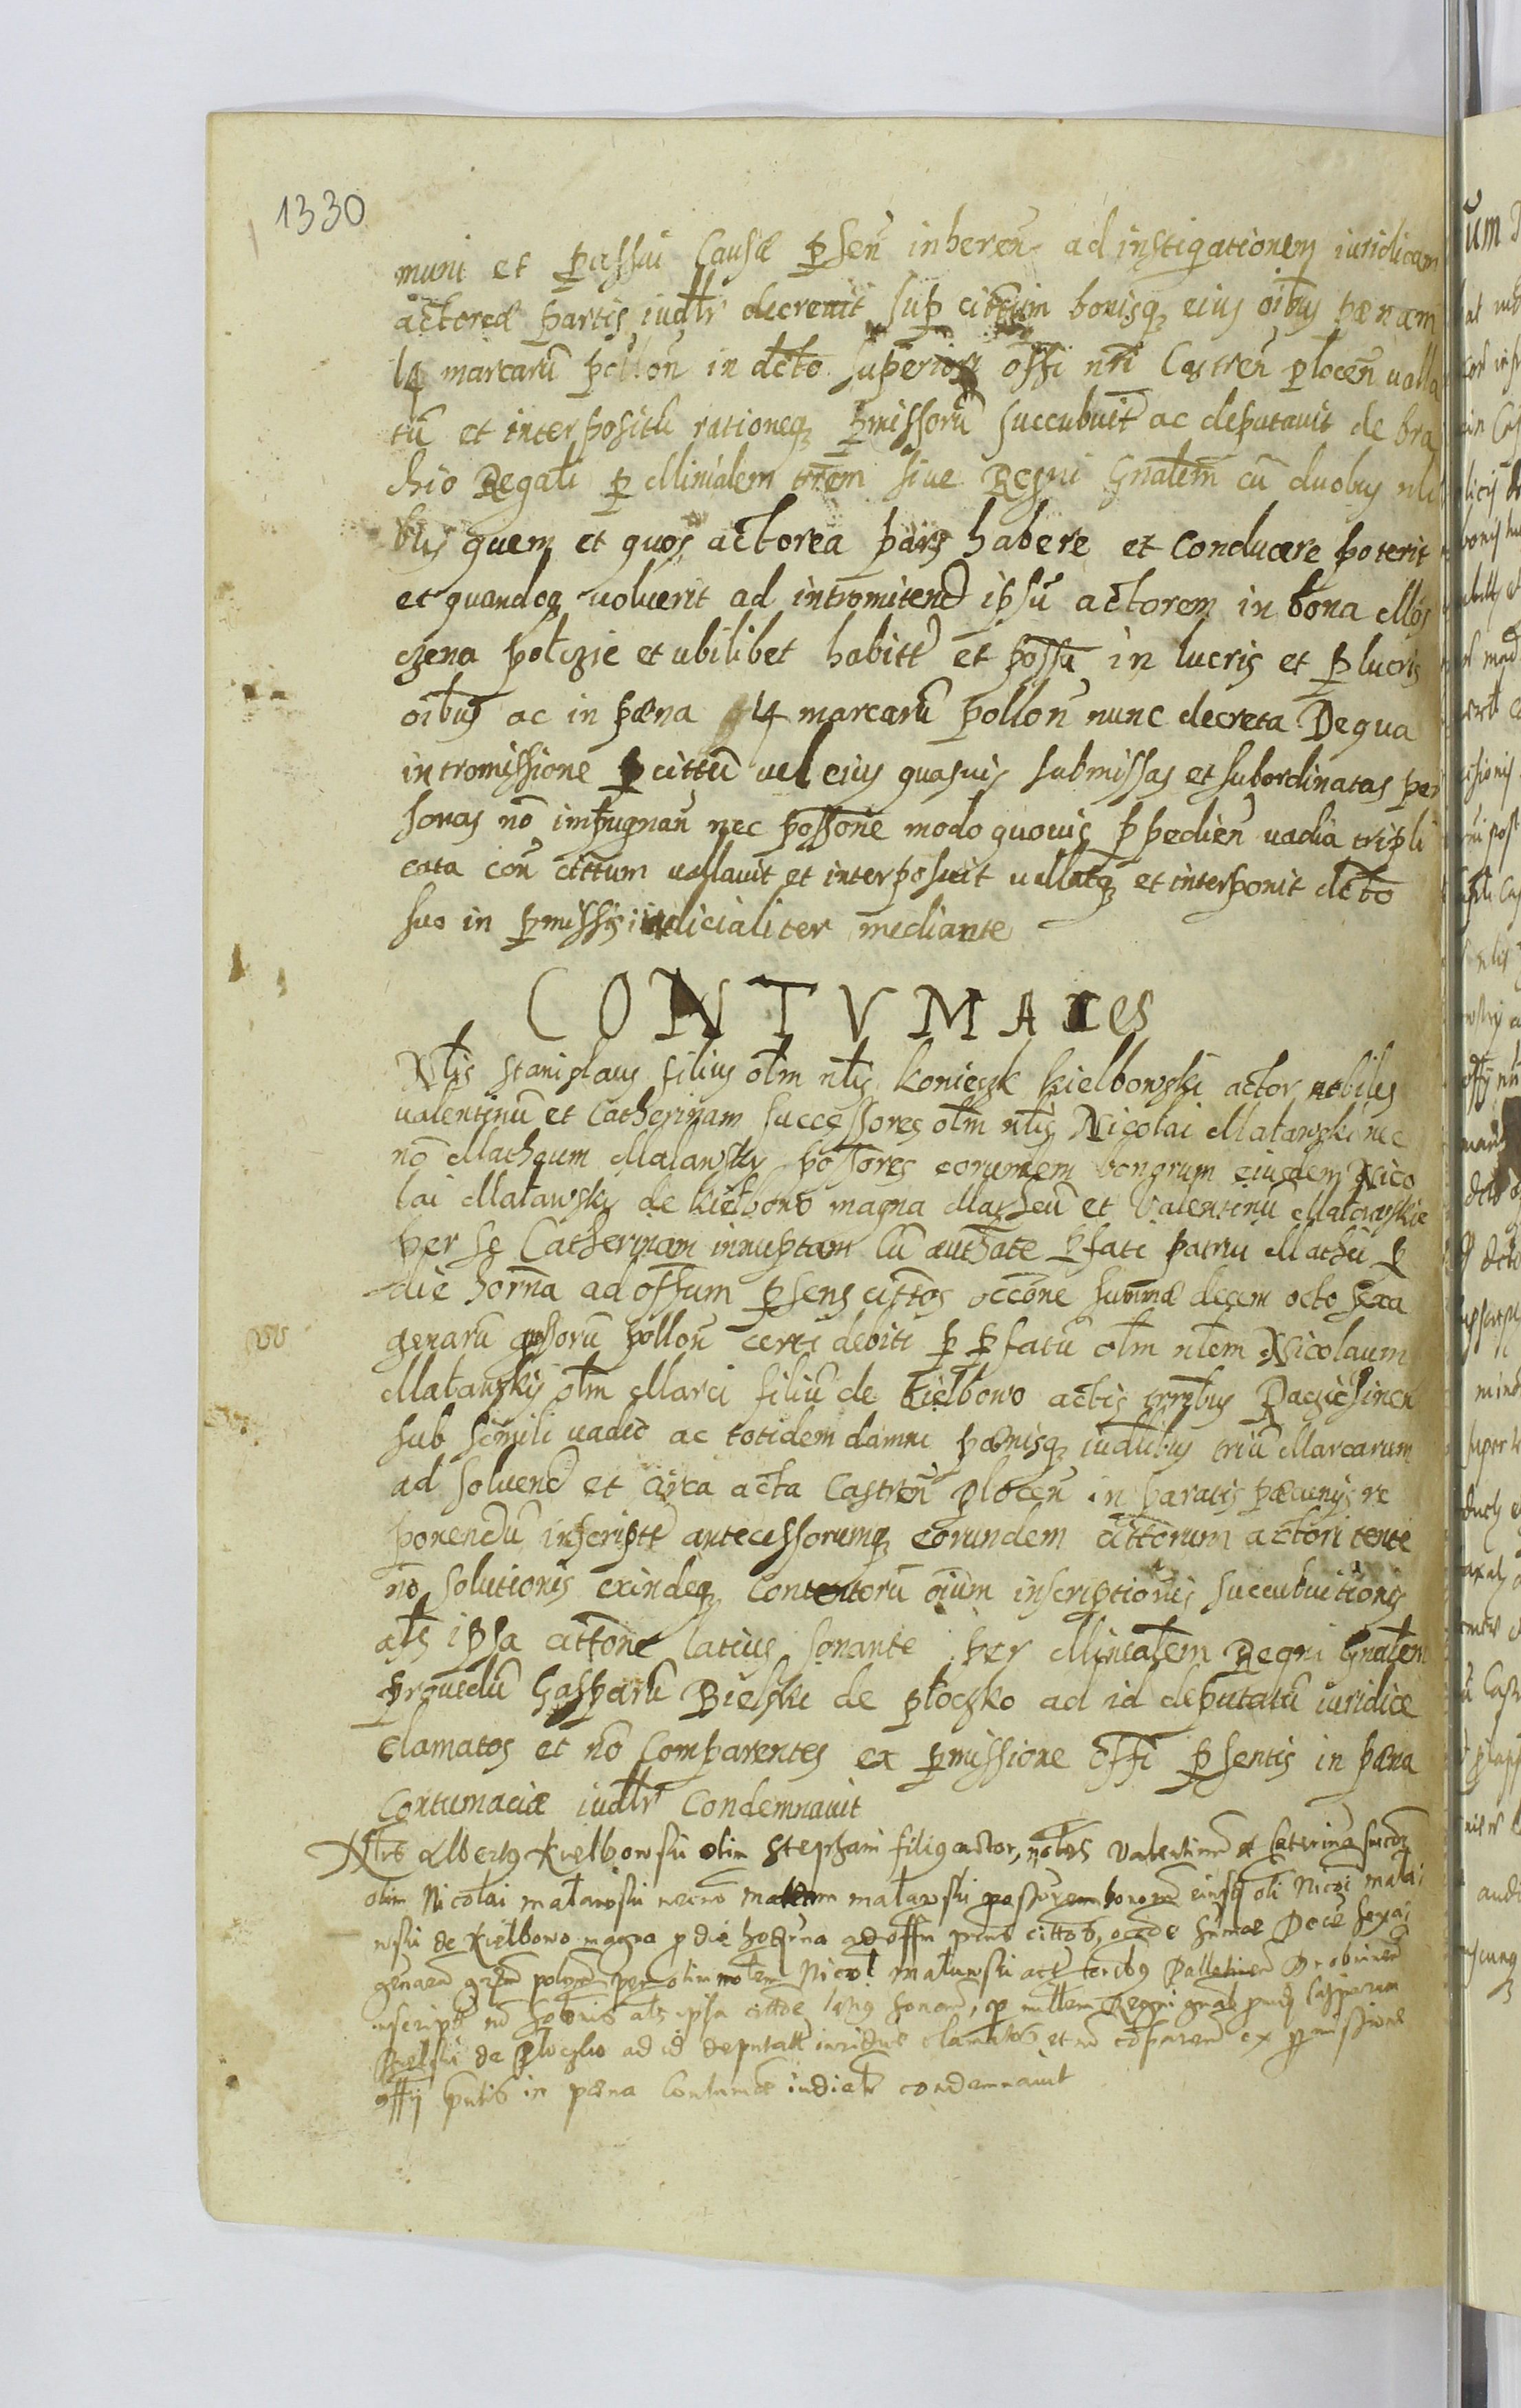 1330
muni et passui Causæ p̄sen̄ inheren̄ ad instigationem iuridicam
actoreæ partis iudlr decreuit sup cittum bonisq̨ eius oībus pænam
14 marcarū pollon̄ in dcto superiori offī nrī Castren̄ plocen̄ valla
tū et interpositū rationeq̨ p̄missorū succubuit ac deputauit de bra
chio Regali p Minialem trēm siue Regni Gnalem cū duobus nli
bus quem et quos actorea pars habere et conducere poterit
et quandoq̨ voluerit ad intromitend ipsū actorem in bona Mos
czena połczie et ubilibet habitt et possā in lucris et p̄ lucris
oībus ac in pæna 14 marcarū pollon̄ nunc decreta De qua
intromissione p cittū vel eius quasuis submissas et subordinatas per
sonas nō impugnan̄ nec possone modo quouis p̄pedien̄ vadia tripli
cata con̄ cittum vallauit et interposuit vallatq̨ et interponit dcto
suo in p̄missis iudicialiter mediante
CONTVMACes
Nlis Stanislaus filius olm nlis Konieczk Kielbowski actor nobiles
valentinū et Catherinam successores olm nlis Nicolai Maławski nec
nō Matheum Malawsky possores eorumdem bonorum eiusdem Nico
lai Matawsky de Kiełbowo magna Matheū et Valentinū Matawskie
per se Catherinam innuptam cū autħate p̄fati patrui Mathei p
die horna ad offium p̄sens cittos occōne summæ decem octo sexa
genarū grossorū pollon̄ certi debiti p p̄fatū olm nlem Nicolaum
Matawskij olm Marci filiū de Kiełbowo actis trrībus Raczieszinen
sub simili vadio ac totidem damni pænisq̨ iudlibus triū Marcarum
ad soluend et circa acta Castren̄ Plocen̄ in paratis pæcunijs re
ponendū inscriptt antecessorumq̨ eorundem cittorum actori tente
nō solutionis exindeq̨ contentorū oīum inscriptionis succubuitionis
alts ipsa cittōne latius sonante per Minialem Regni Gnalem
prouidū Gasparū Bielski de płoczko ad id deputatū iuridice
clamatos et nō comparentes ex p̄missione offī p̄sentis in pæna
Contumaciæ iudlr Condemnauit
Nlis Albertus Kiełbowski olim Stephani filius actor, nobles Valentinū et Caterinā succōr
olim Nicolai maławski necnō Matheum maławski possorem bonorū eiusd oli Nicoī mała
wski de Kiełbowo magna p die hodierna ad offm pn̄s cittos, occōe summæ Decē sexa
genarū grsm polon̄ per olim nlem Nicol maławski act terribus Pallatinen̄ Drobinen̄
inscriptt nō solōnis alts ipsa cittōe latius sonan̄, p mīlem Regni gnal prud Casparum
Bielski de Ploczko ad id deputatt iuridice clamatos et nō cōparen̄ ex p̄missione
offij pn̄tis in pæna Contumāe iudialr condemnauit